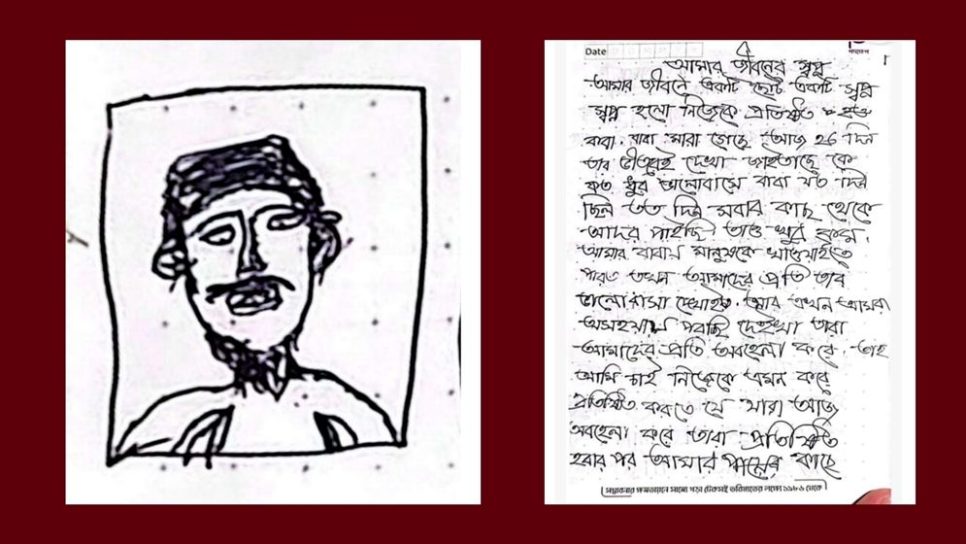 Date
আমার জীবনের স্বপ্ন
আমার জীবনে একটি ছোট একটি স্বপ্ন
স্বপ্ন হলো নিজেকে প্রতিষ্ঠিত
করা. বাবা মারা গেছে আজ ২৬ দিন
তার ভীতরেই দেখা জাইতাছে কে
কত দুর ভালোবাসে বাবা যত দিন
ছিল তত দিন সবার কাছ থেকে
আদর পাইছি তাও খুব কম.
আমার বাবায় মানুষকে খাওয়াইতে
পারত তখন আমাদের প্রতি তার
ভালোবাসা দেখাইত. আর এখন আমরা
অসহায় দেইখা তারা
আমাদের প্রতি অবহেলা করে. তাই
আমি চাই নিজেকে এমন করে
প্রতিষ্ঠিত করতে যে যারা আজ
অবহেলা করে তারা প্রতিষ্ঠিত
হবার পর আমার পায়ের কাছে